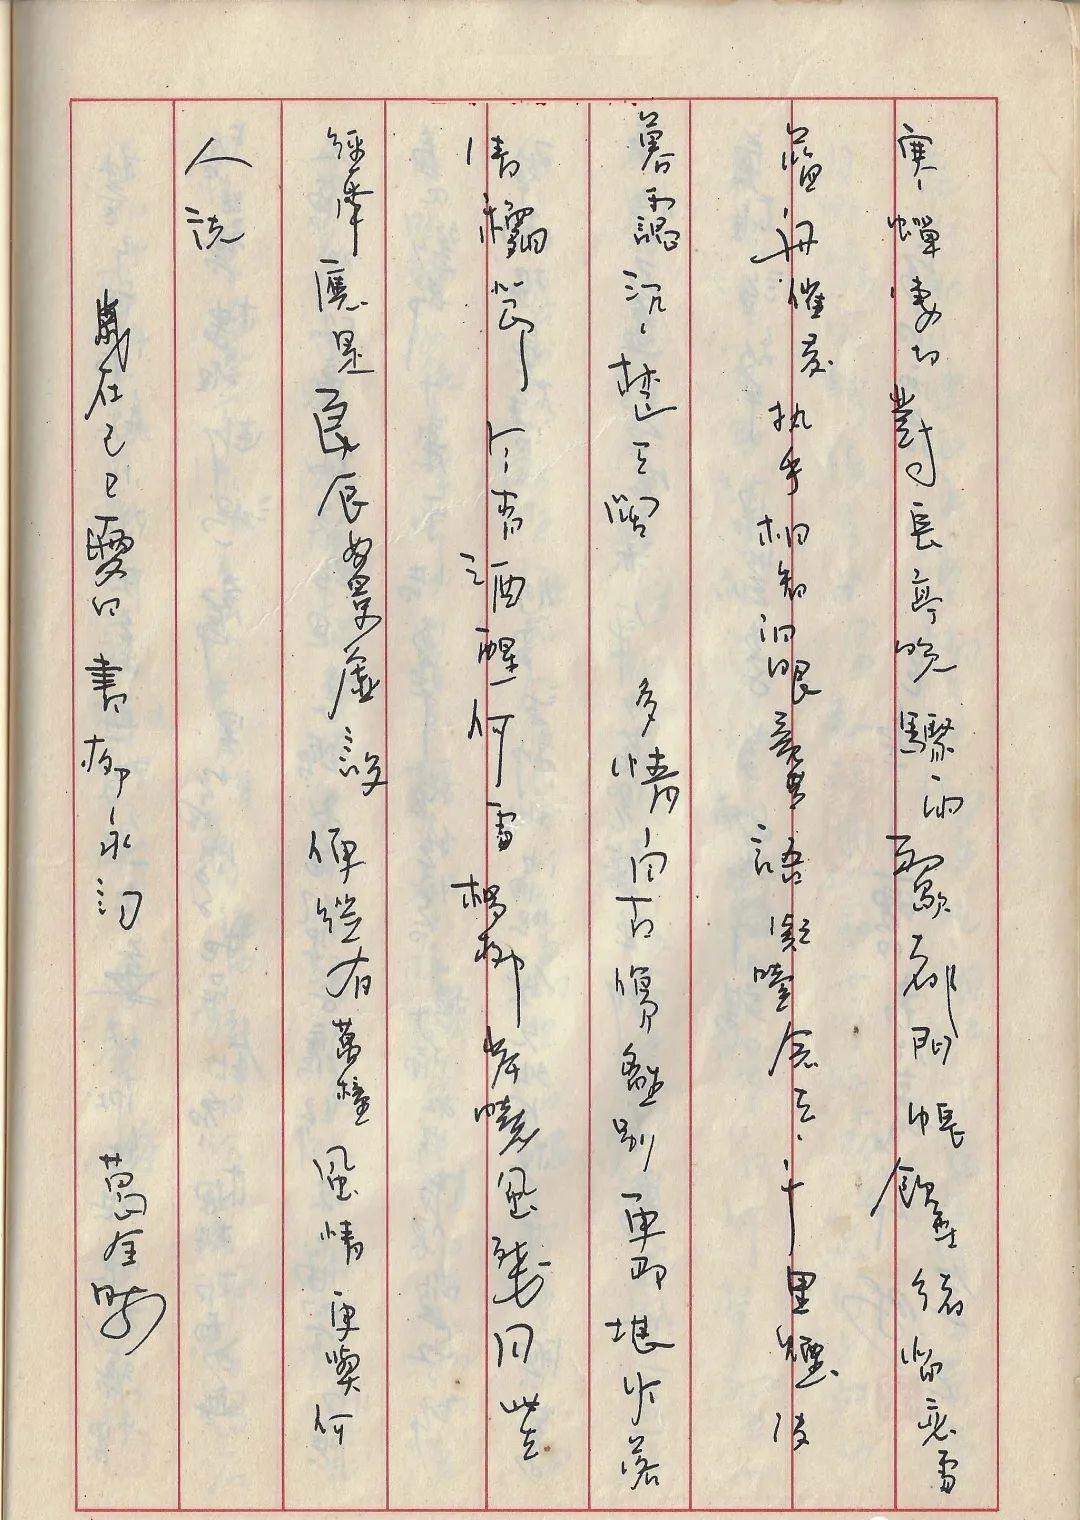 寒蟬凄切對長亭晚驟雨初歇都門帳飲無緒留恋處
蘭舟催發执手相看泪眼竟無語凝噎念去去千里煙波
暮靄沉沉楚天闊 多情自古傷離別更那堪冷落
清秋節 今宵酒醒何處楊柳岸曉風殘月此去
經年應是良辰好景虛設 便縱有萬種風情更與何
人說
歲在己巳夏日書柳永詞 葛金